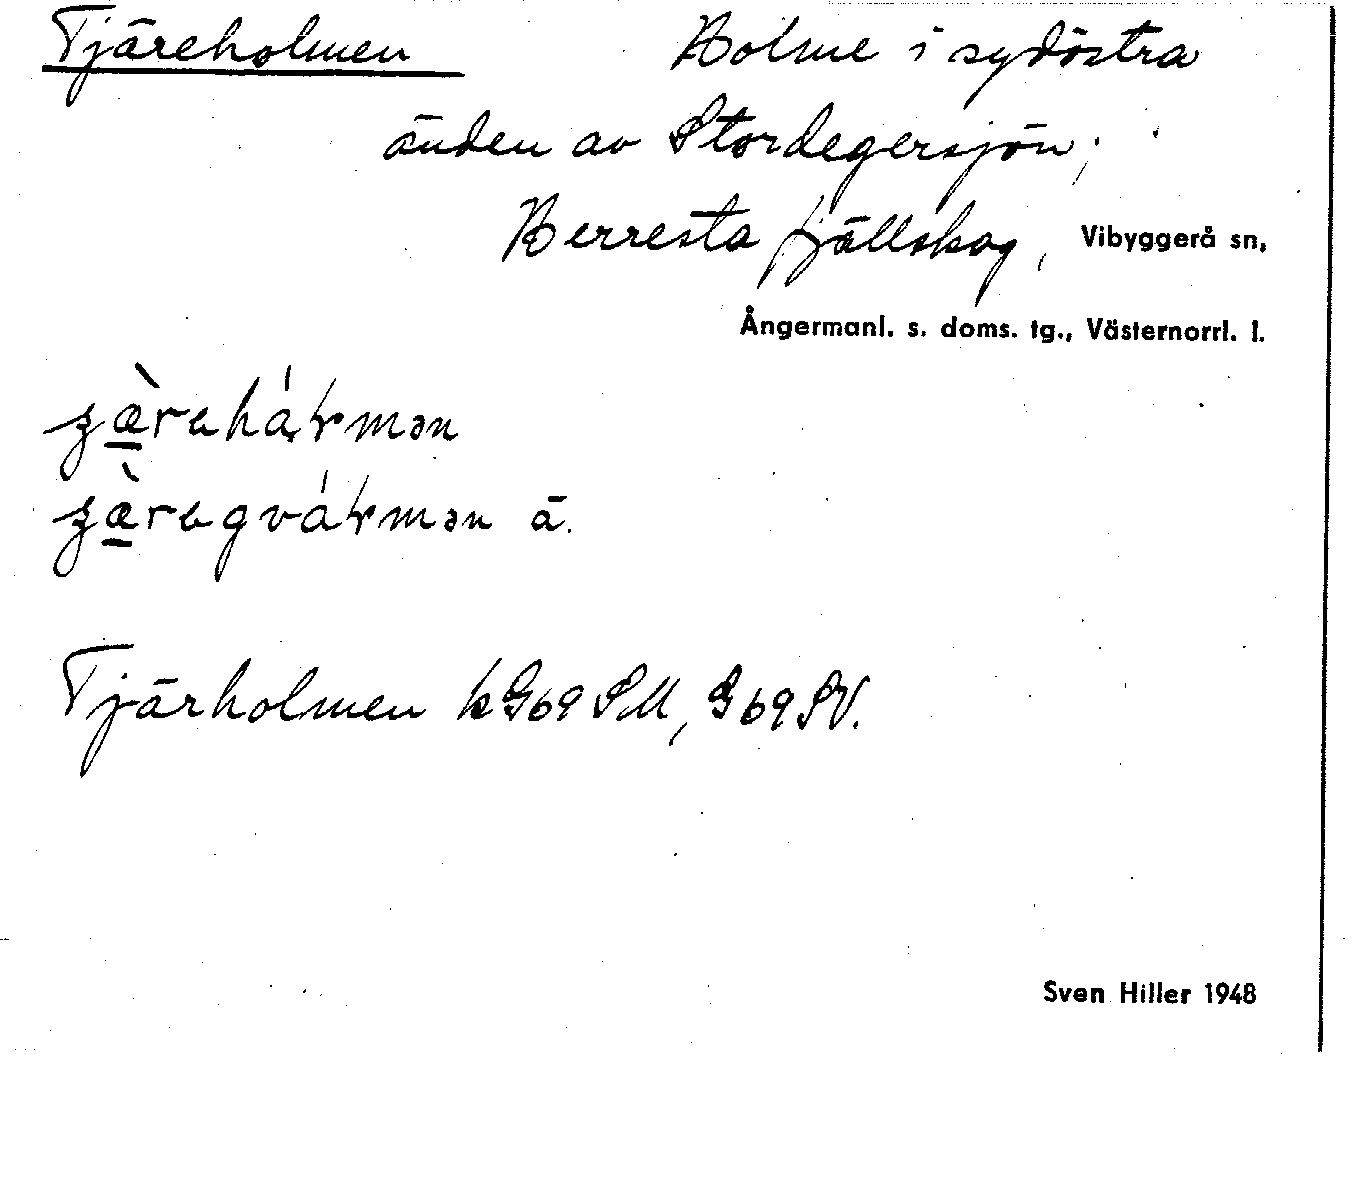 Tjäreholmen Holme i sydöstra
änden av Stordegersjön;
Herresta fjällskog, Vibyggerå sn,
Ångermanl. s. doms. tg., Västernorrl. l.
ä.
Tjärholmen kG69SM, G69SV.
Sven Hiller 1948